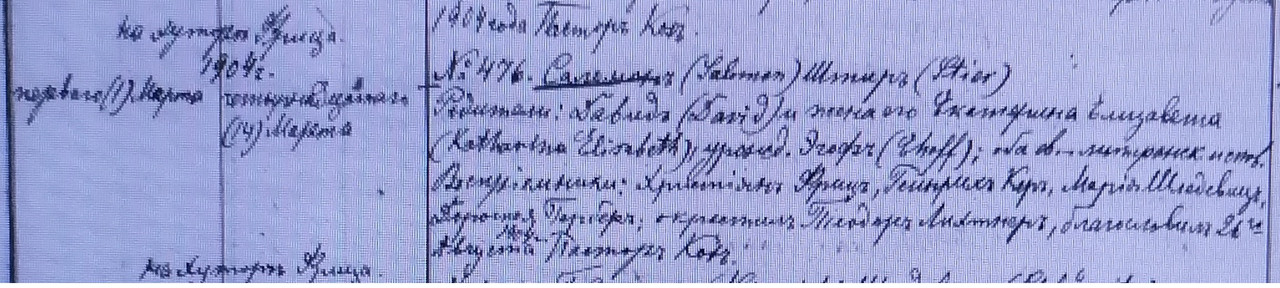 на хуторѣ Фрица.
1904 г.
перваго (1) Марта
четырнадцатаго
(14) Марта
1904 года Пасторъ Кохъ.
№ 476. Саломонъ (Salomon) Штиръ (Stier)
Родители: Давидъ (David) и жена его Екатерина Елизавета
(Katharina Elisabeth), урожд. Эгофъ (Ehoff); оба ев.-лютеранск. исп.
Воспріемники: Христіанъ Фрицъ, Гейнрихъ Керъ, Марія
Доротея Герберъ; окрестилъ Теодоръ Лихтнеръ, благословилъ 26го
Августа 1904 Пасторъ Кохъ.
на хуторѣ Фрица.